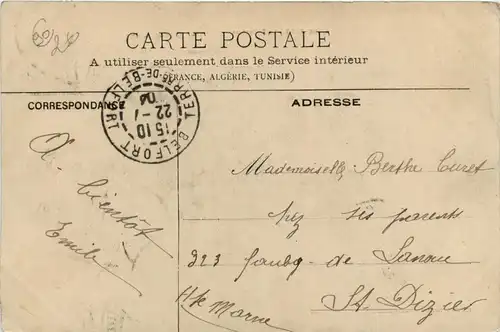 CARTE POSTALE
A utiliser seulement dans le Service intérieur
(FRANCE, ALGÉRIE, TUNISIE)
CORRESPONDANCE
ADRESSE
BELFORT
TERRRE-DE-BELFORT
15 10
22 - 1
04
A bientôt
Emile
Mademoiselle Berthe Curet
chez ses parents
323 faubg de Lanoue
St Dizier
Hte Marne